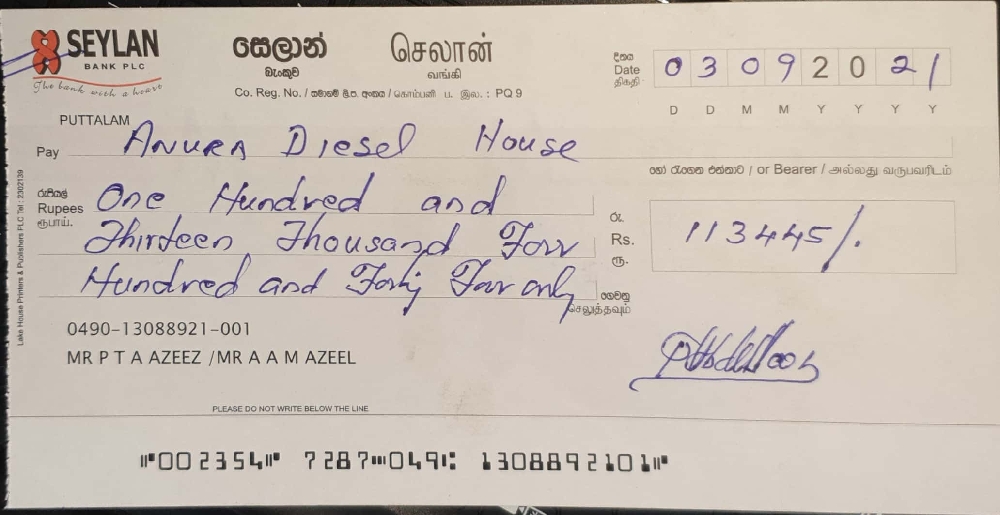 SEYLAN
BANK PLC
The bank with a heart
සෙලාන්
බැංකුව
செலான்
வங்கி
Co. Reg. No. / සමාගම් ලි.ප. අංකය / கம்பனி ப. இல. : PQ 9
දිනය
Date
திகதி
0 3 0 9 2 0 2 1
D D M M Y Y Y Y
PUTTALAM
Pay Anura Diesel House
හෝ රැගෙන එන්නාට / or Bearer / அல்லது வருபவரிடம்
රුපියල්
Rupees
ரூபாய்.
One Hundred and
Thirteen Thousand Four
Hundred and Forty Four only
ගෙවනු
செலுத்தவும்
රු.
Rs.
ரூ.
113445/.
0490-13088921-001
MR P T A AZEEZ /MR A A M AZEEL
PLEASE DO NOT WRITE BELOW THE LINE
002354 7287 049 1308892101
Lake House Printers & Publishers PLC Tel : 2302139